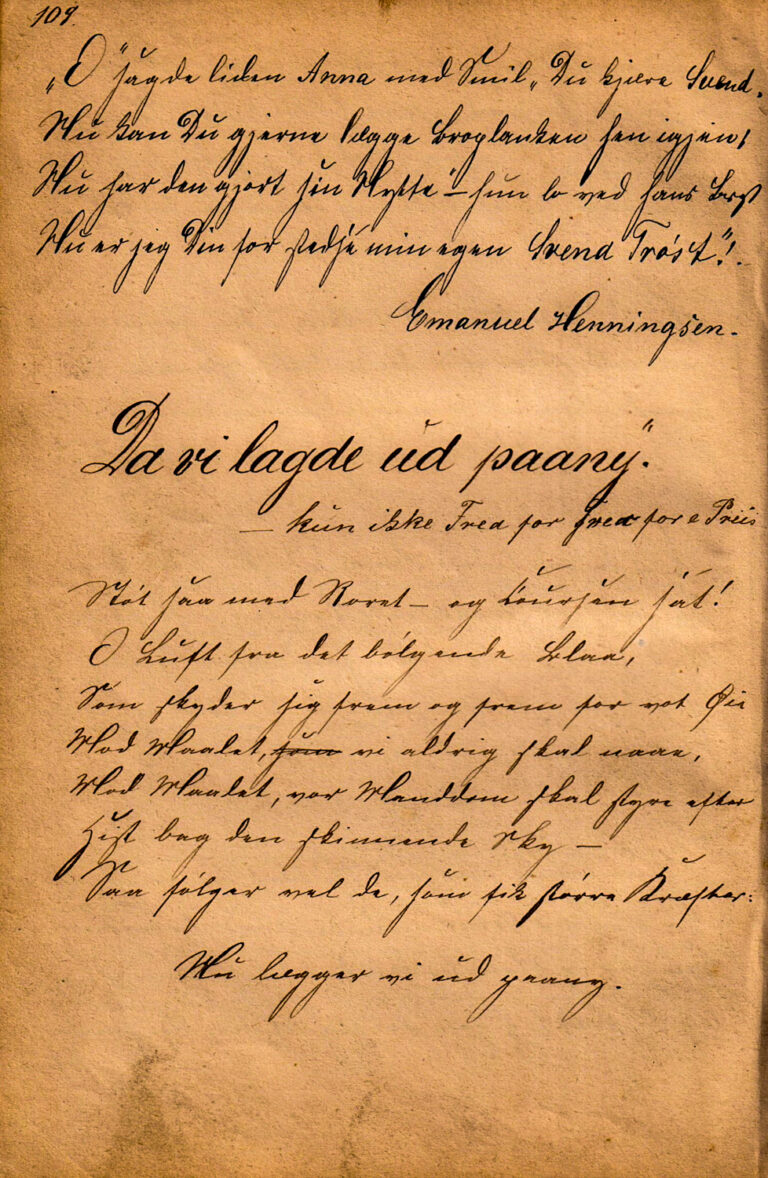 109.
„O" sagde liden Anna med Smil „Du kjære Svend,
Nu kan Du gjerne lægge Broplanken hen igjen!
Nu har den gjort sin Nytte" – hun lo ved hans Bryst
Nu er jeg Din for stedse min egen Svend Trøst"!.
Emanuel Henningsen.
Da vi lagde ud paany".
– kun ikke Fred for for e Priis
Støt saa med Roret – og Coursen sat!
O Luft fra det bølgende Blaa,
Som skyder sig frem og frem for vot Øie
Mod Maalet, som vi aldrig skal naae,
Mod Maalet, vor Manddom skal styre efter
Hist bag den skinnende Sky –
Saa følger vel de, som fik større Kræfter:
Nu lægger vi ud paany.